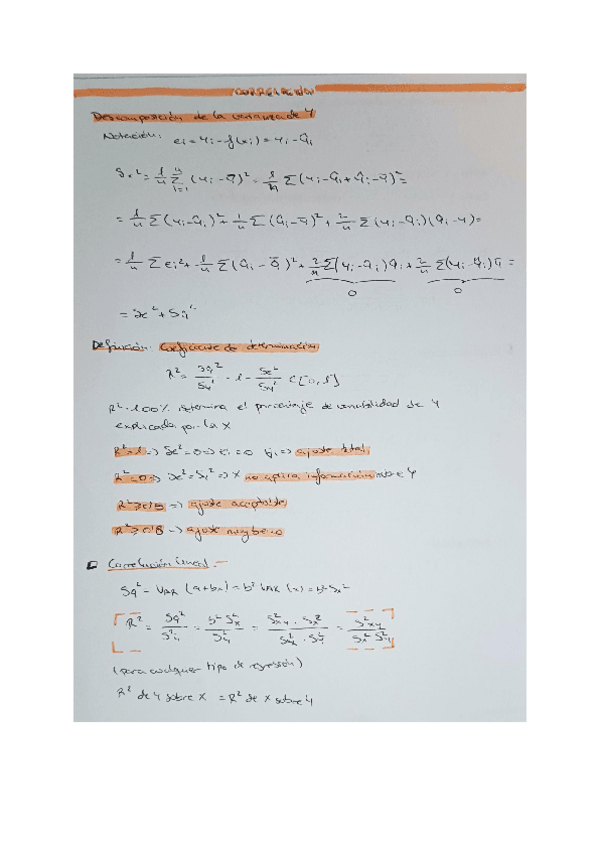 CORRELACIÓN
Descomposición de la varianza de Y
Notación: ei = yi - f(xi) = yi - ŷi
Sy² = 1/n Σ(i=1)^n (yi - ȳ)² = 1/n Σ (yi - ŷi + ŷi - ȳ)² =
= 1/n Σ (yi - ŷi)² + 1/n Σ (ŷi - ȳ)² + 2/n Σ (yi - ŷi)(ŷi - y) =
= 1/n Σ ei² + 1/n Σ (ŷi - ȳ)² + 2/n Σ (yi - ŷi) ŷi + 2/n Σ (yi - ŷi) ȳ =
0 0
= Se² + Sŷ²
Definición: Coeficiente de determinación
R² = Sŷ²/Sy² = 1 - Se²/Sy² ∈ [0,1]
R²·100% determina el porcentaje de variabilidad de Y
explicada por la X
R²=1 => Se²=0 => ei=0 ∀i => ajuste total
R²=0 => Se²=Sy² => X no aplica información sobre Y
R²≥0'5 => ajuste aceptable
R²≥0'8 => ajuste muy bueno
Correlación lineal
Sŷ² = VAR (a+bx) = b² VAR (x) = b² Sx²
R² = Sŷ²/Sy² = b² Sx²/Sy² = S²xy · Sx²/Sx² · Sy² = S²xy/Sx² Sy²
(para cualquier tipo de regresión)
R² de Y sobre X = R² de X sobre Y